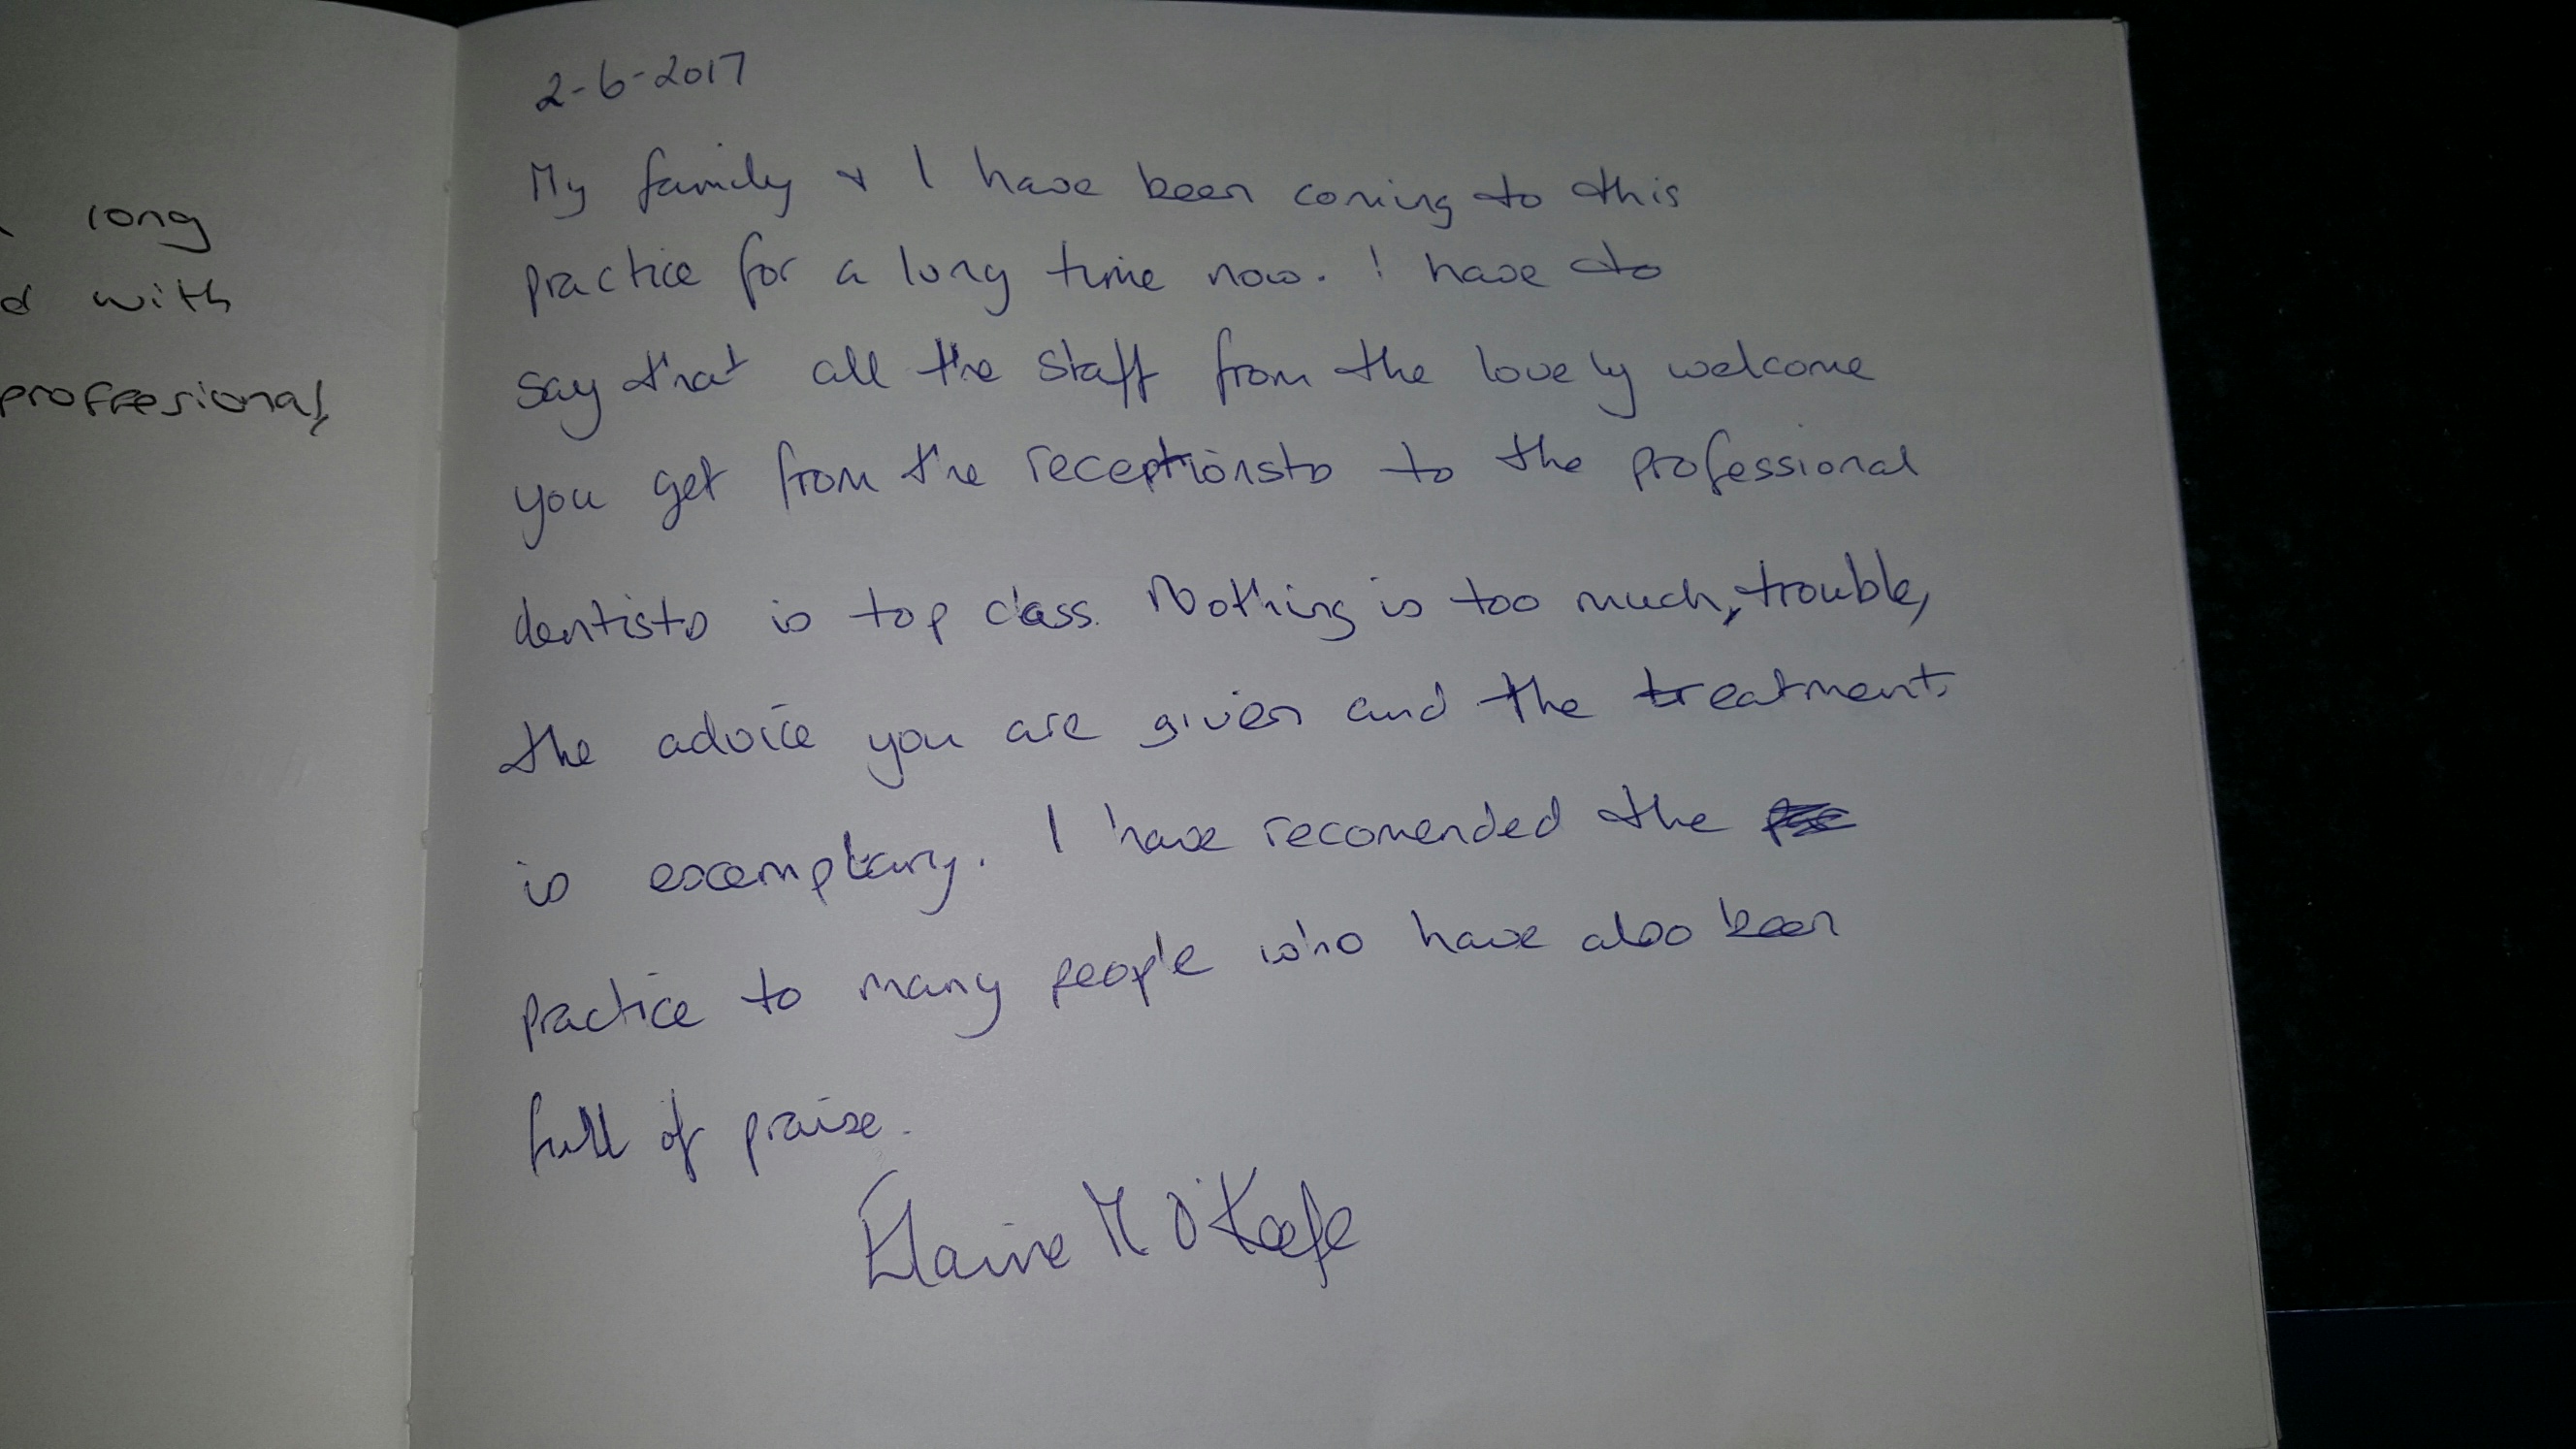 long
d with
proffesional,
2-6-2017
My family & I have been coming to this
practice for a long time now. I have to
say that all the staff from the lovely welcome
you get from the receptionsts to the professional
dentists is top class. Nothing is too much, trouble,
the advice you are given and the treatment
is exemplary. I have recomended the
practice to many people who have also been
full of praise.
Elaine M O'Keefe